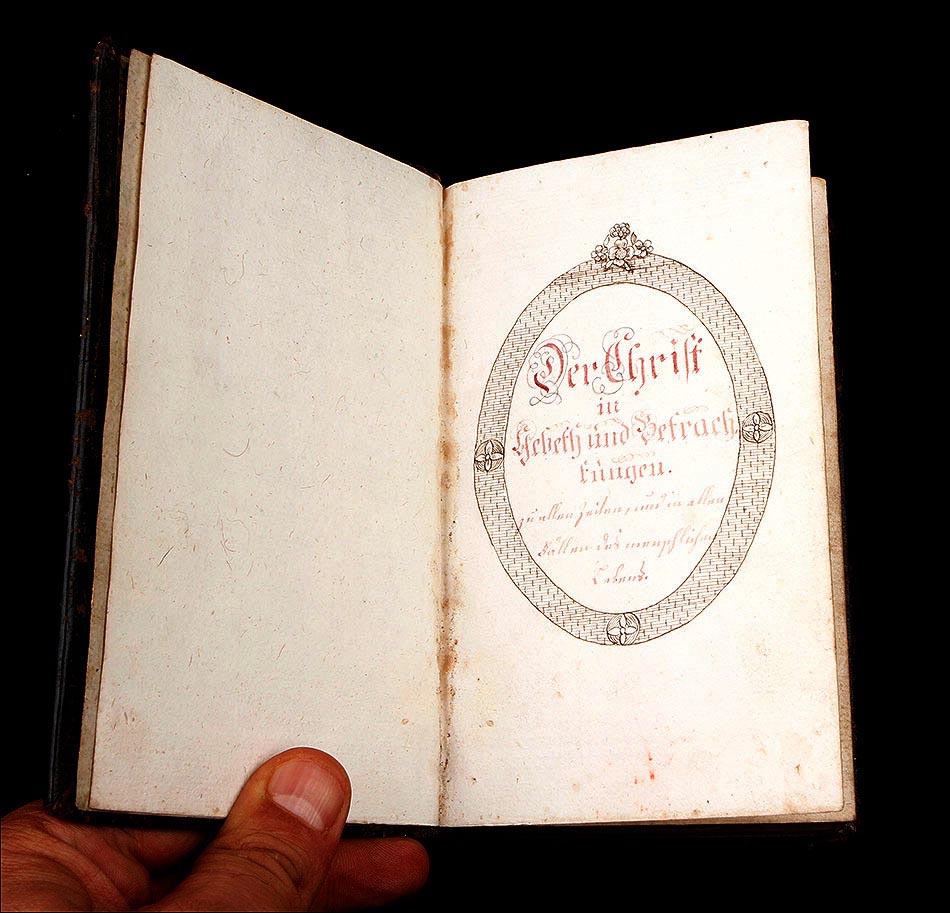 Der Christ
in
Gebeth und Betrach,
tungen.
zu allen Zeiten, und in allen
Fällen des menschlichen
Lebens.